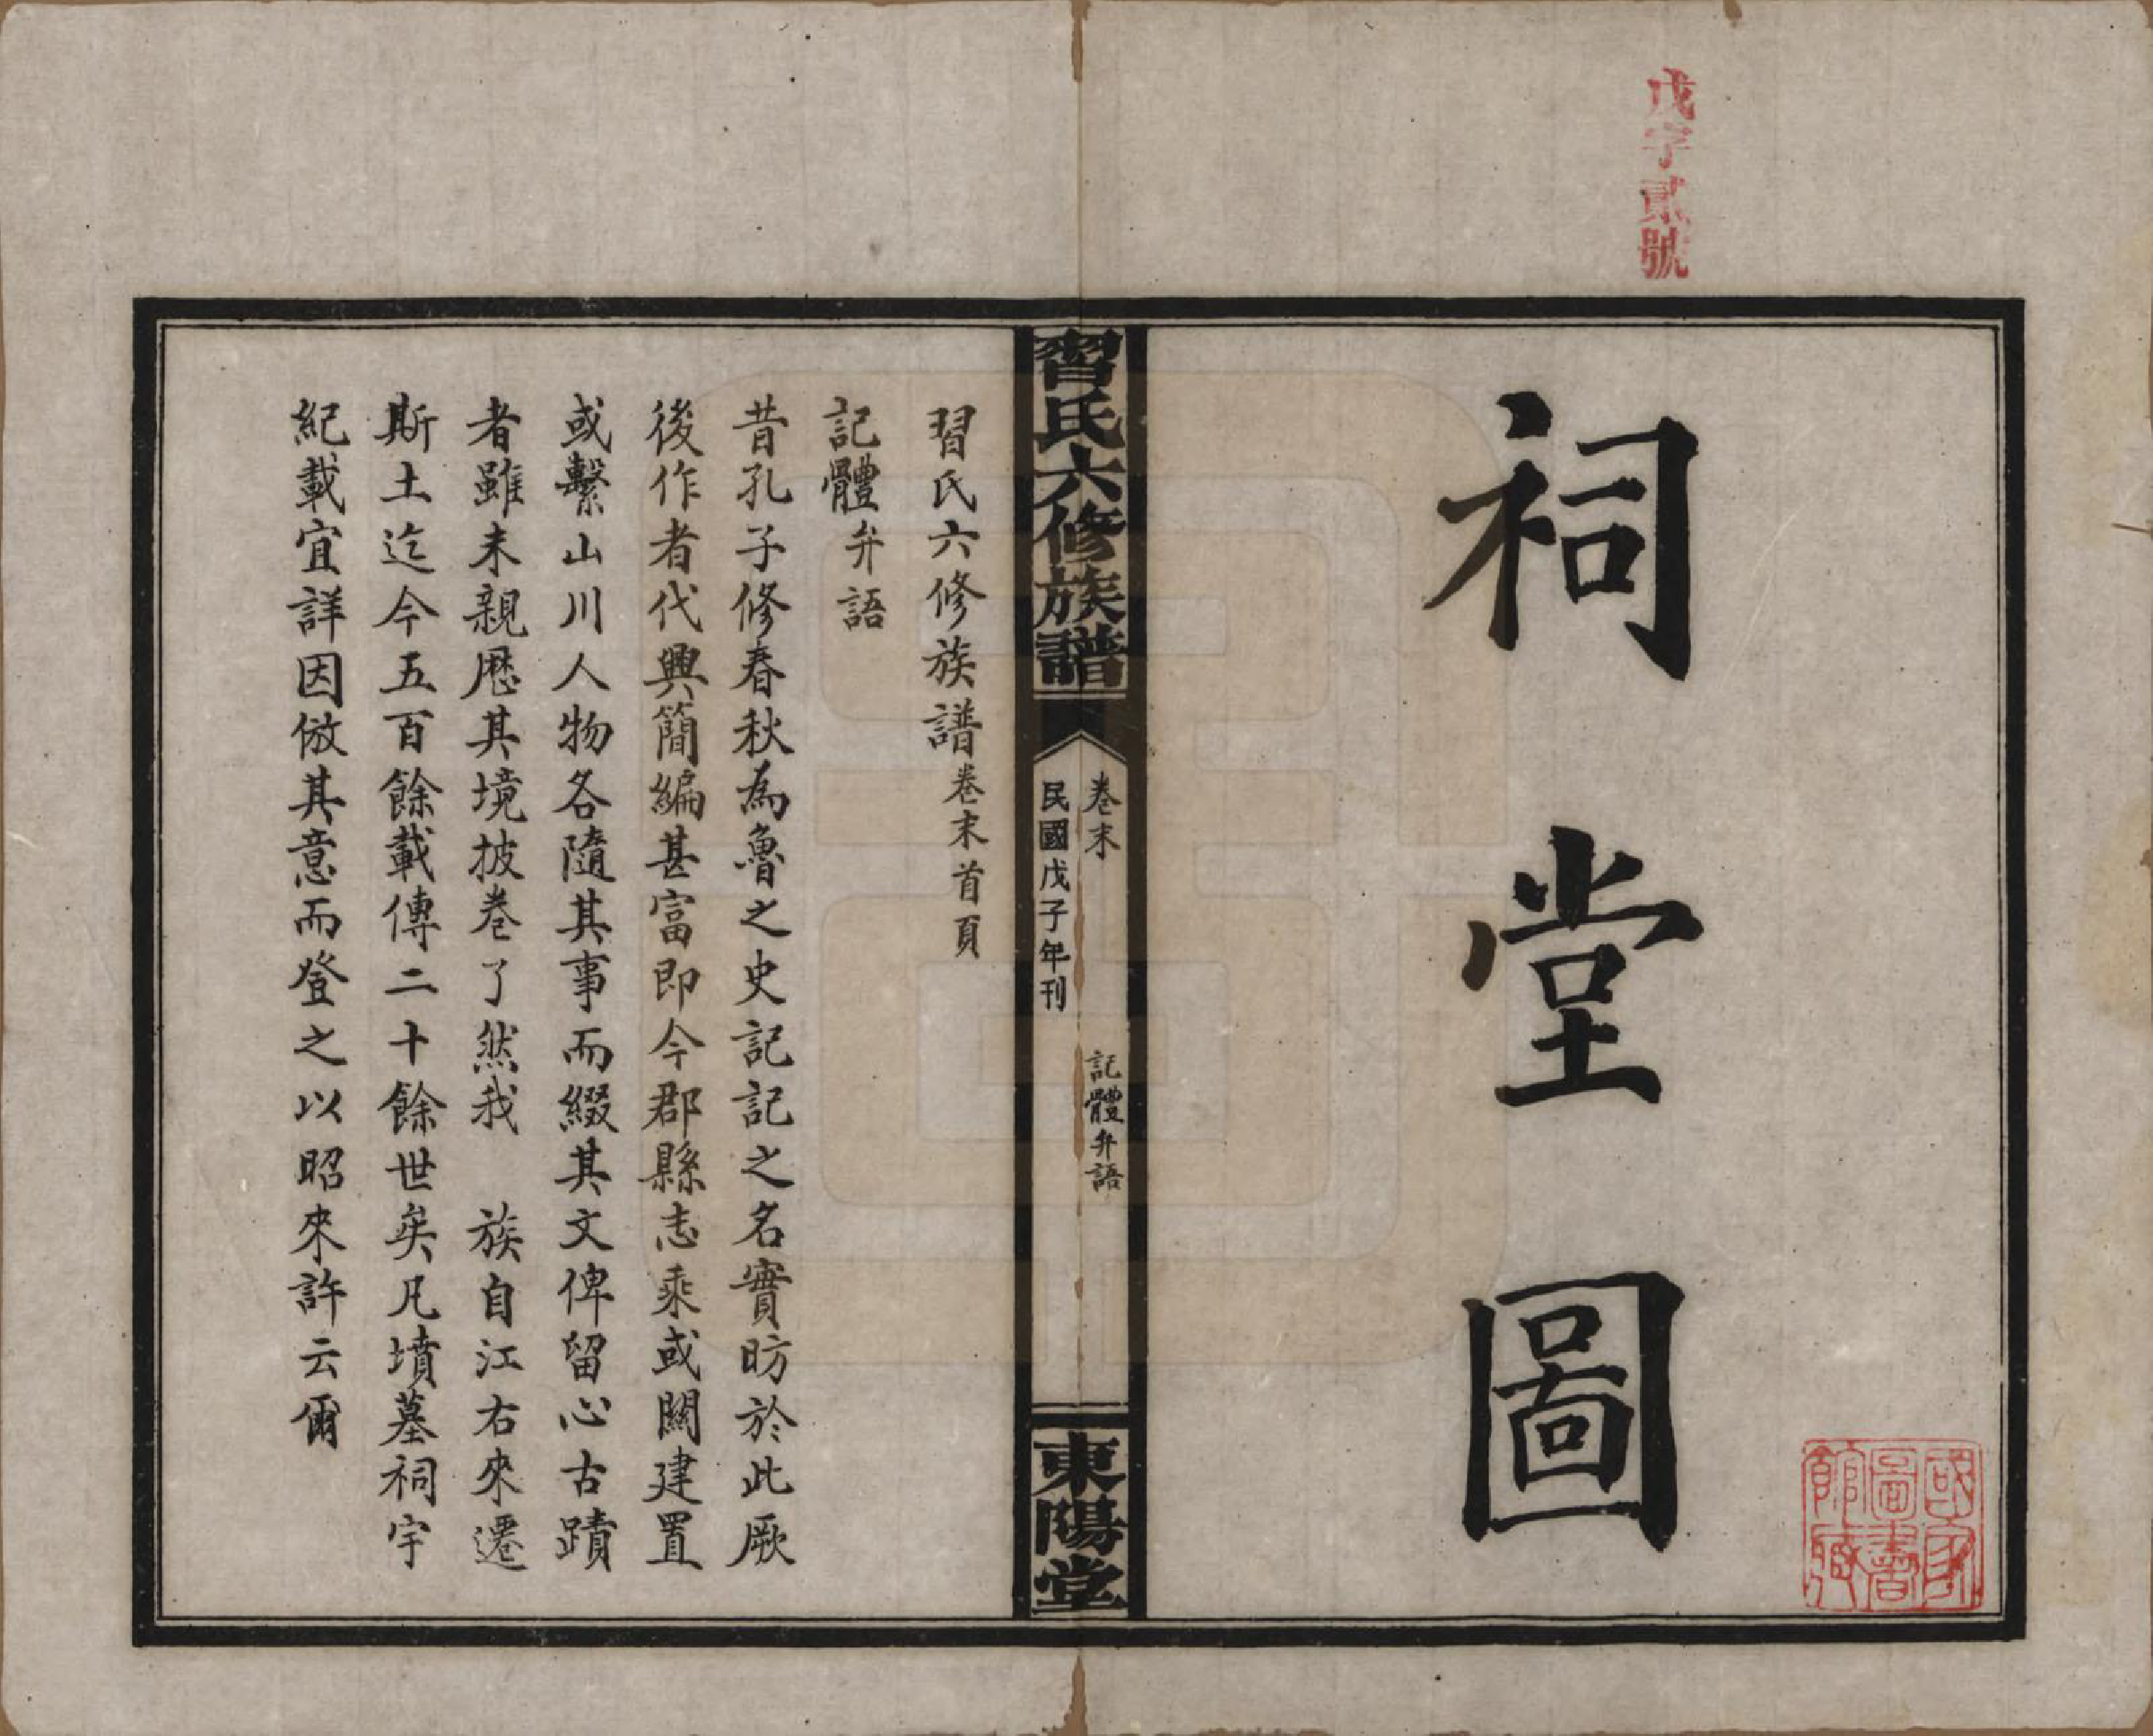 戊字貳號
祠堂圖
國家圖書館藏
習氏六修族譜
卷末
記體弁語
民國戊子年刊
東陽堂
習氏六修族譜卷末首頁
記體弁語
昔孔子修春秋為魯之史記記之名實昉於此厥
後作者代興簡編甚富即今郡縣志乘或關建置
或繫山川人物各隨其事而綴其文俾留心古蹟
者雖未親歷其境披卷了然我 族自江右來遷
斯土迄今五百餘載傳二十餘世矣凡墳墓祠宇
紀載宜詳因倣其意而登之以昭來許云爾